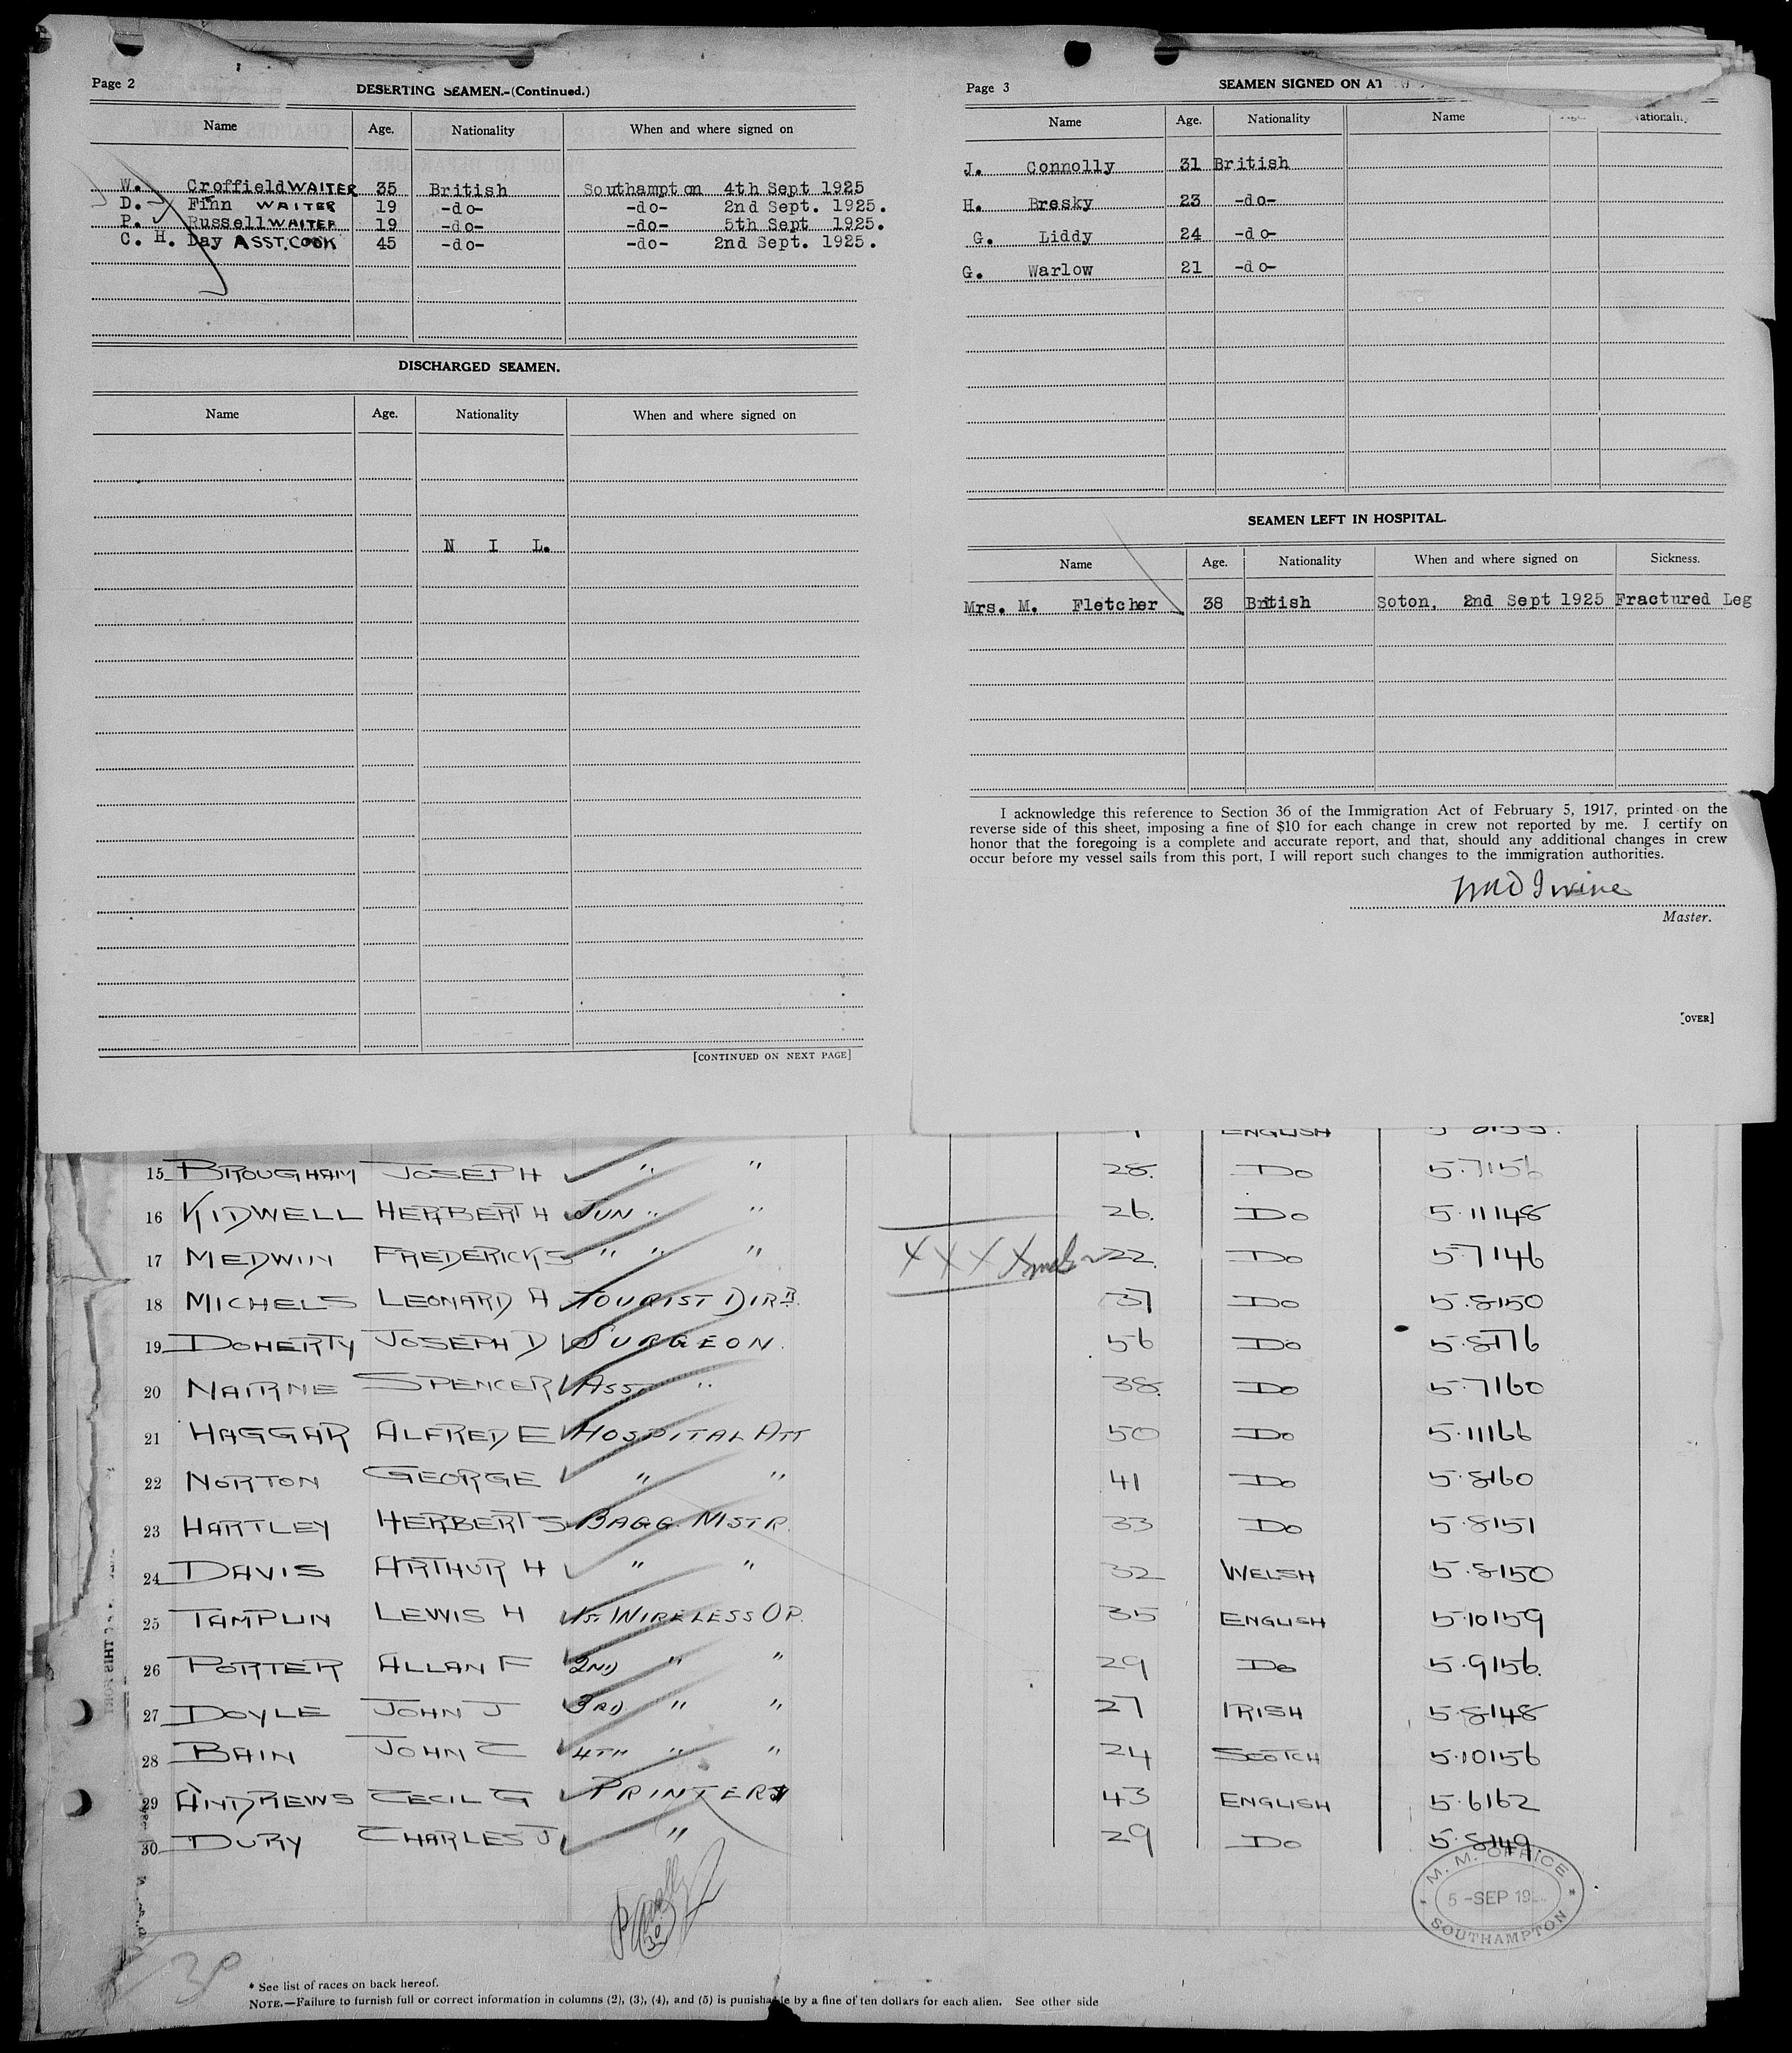 Page 2
DESERTING SEAMEN.-(Continued.)
Name Age. Nationality When and where signed on
W. Croffield WAITER 35 British Southampton 4th Sept 1925
D. Finn WAITER 19 -do- -do- 2nd Sept. 1925.
P. Russell WAITER 19 -do- -do- 5th Sept 1925.
C. H. Day ASST. COOK 45 -do- -do- 2nd Sept. 1925.
DISCHARGED SEAMEN.
Name Age. Nationality When and where signed on
N I L.
[CONTINUED ON NEXT PAGE]
Page 3
SEAMEN SIGNED ON AT
Name Age. Nationality Name Nationality
J. Connolly 31 British
H. Bresky 23 -do-
G. Liddy 24 -do-
G. Warlow 21 -do-
SEAMEN LEFT IN HOSPITAL.
Name Age. Nationality When and where signed on Sickness.
Mrs. M. Fletcher 38 British Soton, 2nd Sept 1925 Fractured Leg
I acknowledge this reference to Section 36 of the Immigration Act of February 5, 1917, printed on the
reverse side of this sheet, imposing a fine of $10 for each change in crew not reported by me. I certify on
honor that the foregoing is a complete and accurate report, and that, should any additional changes in crew
occur before my vessel sails from this port, I will report such changes to the immigration authorities.
Irvine
Master.
[OVER]
ENGLISH
15 BROUGHAM JOSEPH " " 28. DO 5.7 156
16 KIDWELL HERBERT H JUN " " 26. DO 5.11 148
17 MEDWIN FREDERICK S " " " XXX 22. DO 5.7 146
18 MICHELS LEONARD A TOURIST DIRR 37 DO 5.8 150
19 DOHERTY JOSEPH D SURGEON. 56 DO 5.8 176
20 NAIRNE SPENCER ASST " 38. DO 5.7 160
21 HAGGAR ALFRED E HOSPITAL ATT 50 DO 5.11 166
22 NORTON GEORGE " " 41 DO 5.8 160
23 HARTLEY HERBERT S BAGG. MSTR. 33 DO 5.8 151
24 DAVIS ARTHUR H " " 32 WELSH 5.8 150
25 TAMPLIN LEWIS H 1ST WIRELESS OP. 35 ENGLISH 5.10 159
26 PORTER ALLAN F 2ND " " 29 DO 5.9 156.
27 DOYLE JOHN J 3RD " " 27 IRISH 5.8 148
28 BAIN JOHN C 4TH " " 24 SCOTCH 5.10 156
29 ANDREWS CECIL G PRINTER 43 ENGLISH 5.6 162
30 DURY CHARLES J " 29 DO 5.8 149
M. M. OFFICE
5 -SEP 19
SOUTHAMPTON
30
* See list of races on back hereof.
NOTE.—Failure to furnish full or correct information in columns (2), (3), (4), and (5) is punishable by a fine of ten dollars for each alien. See other side